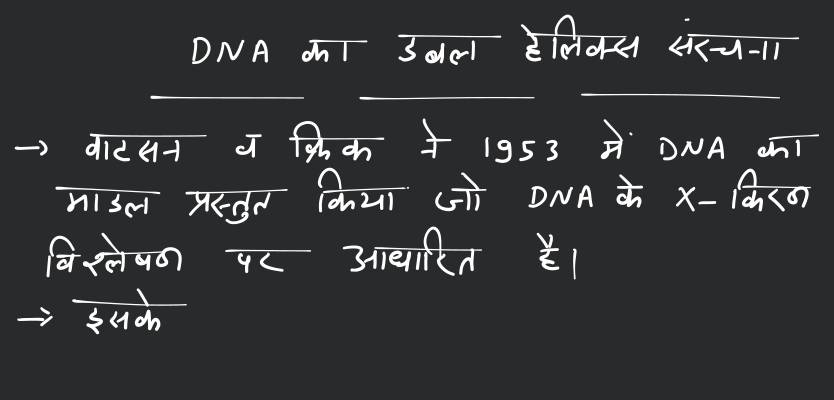 DNA का डबल हेलिक्स संरचना
→ वाटसन व क्रिक ने 1953 में DNA का
माडल प्रस्तुत किया जो DNA के X-किरण
विश्लेषण पर आधारित है।
→ इसके